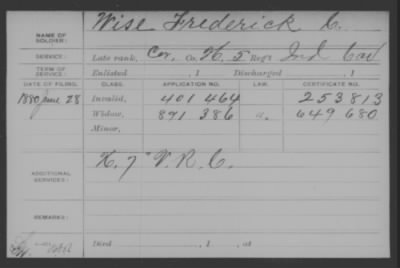 NAME OF SOLDIER: Wise Frederick C.
SERVICE: Late rank, Cor, Co. H, 5 Reg't Ind Cav
TERM OF SERVICE: Enlisted , 1 Discharged , 1
DATE OF FILING. CLASS. APPLICATION NO. LAW. CERTIFICATE NO.
1880 June 28 Invalid, 401 464 253 813
Widow, 871 386 649 680
Minor,
ADDITIONAL SERVICES: K. 7" V.R.C.
REMARKS:
Died , 1 , at